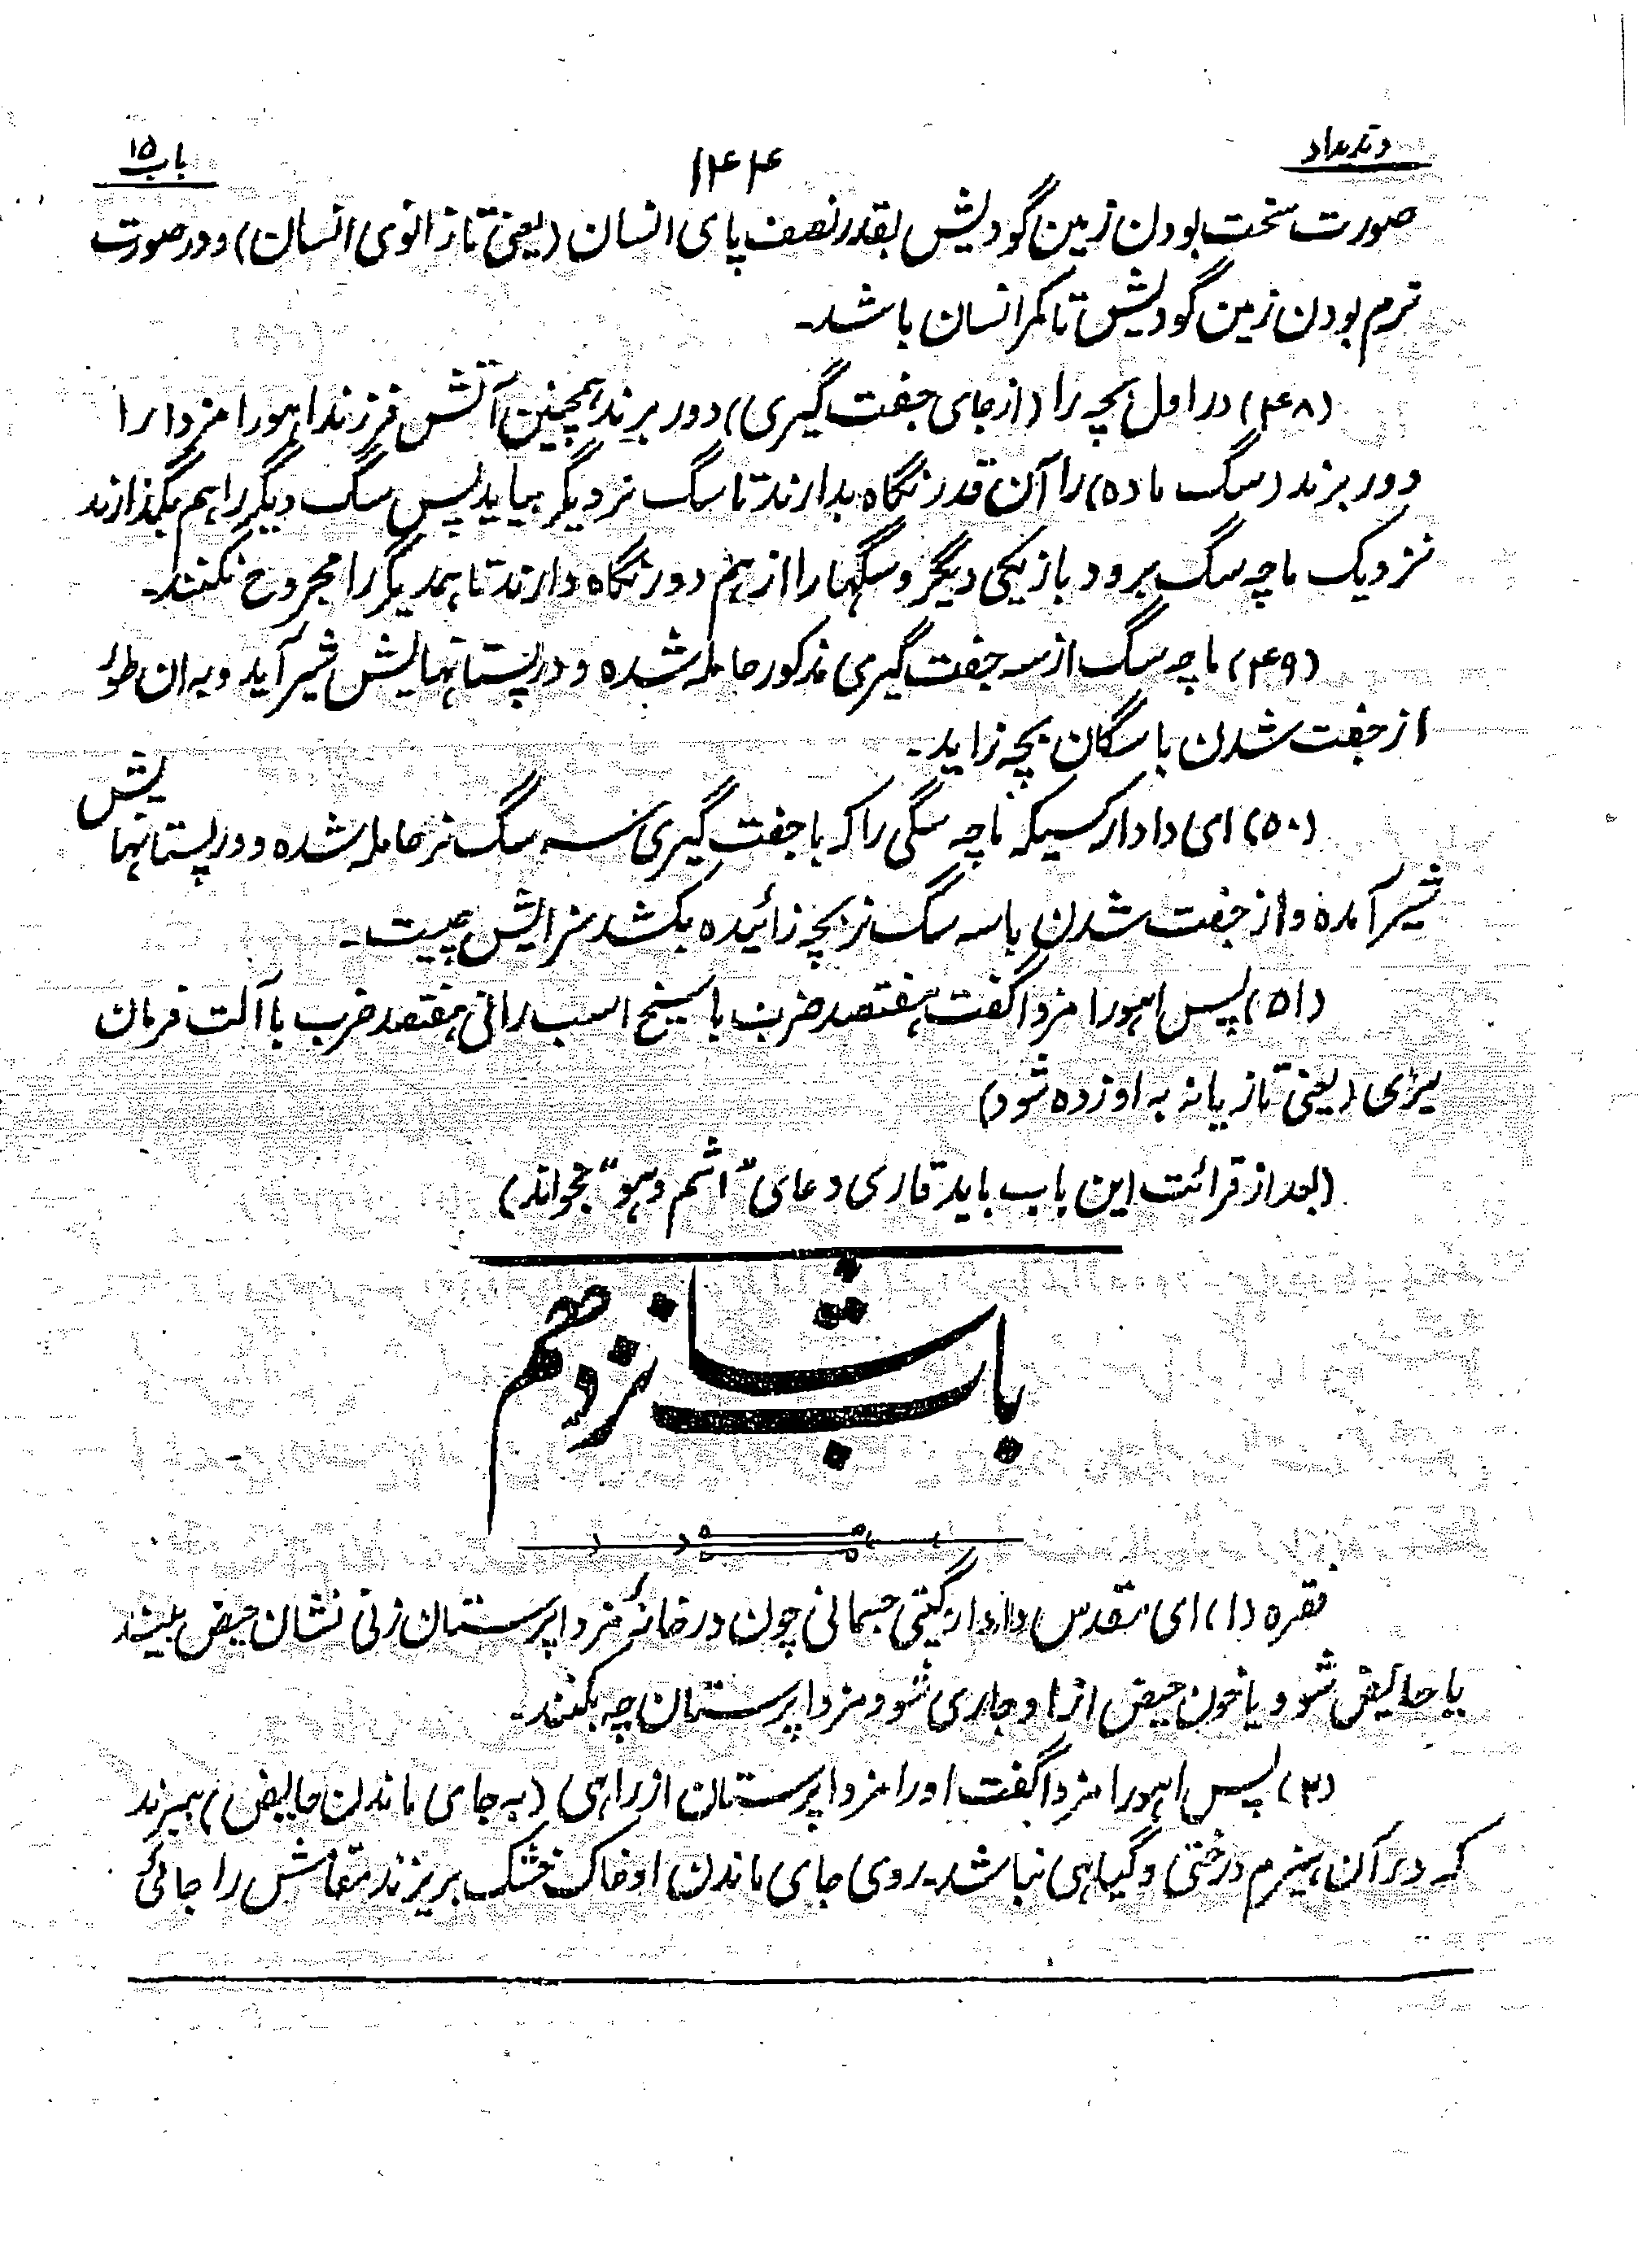 وندیداد
۱۴۴
باب ۱۵
صورت سخت بودن زمین گودیش بقدر نصف پای انسان (یعنی تا زانوی انسان) و در صورت
نرم بودن زمین گودیش تا کمر انسان باشد۔
(۴۸) در اول بچه را (از جای جفت گیری) دور برند همچنین آتش فرزند اهورا مزدا را
دور برند (سگ ماده) را آن قدر نگاه بدارند تا سگ نر دیگر بیاید پس سگ دیگر را هم بگذارند
نزدیک ماچه سگ برود باز یکی دیگر و سگها را از هم دور نگاه دارند تا همدیگر را مجروح نکنند۔
(۴۹) ماچه سگ از سه جفت گیری مذکور حامله شده و در پستانهایش شیر آید و به ان طور
از جفت شدن با سگان بچه زاید۔
(۵۰) ای دادار کسیکه ماچه سگی را که با جفت گیری سه سگ نر حامله شده و در پستانهایش
شیر آمده و از جفت شدن با سه سگ نر بچه زائیده بکشد سزایش چیست۔
(۵۱) پس اهورا مزدا گفت هفتصد ضربت با سیخ اسب رانی هفتصد ضرب با آلت فرمان
بری (یعنی تازیانه به او زده شود)
(بعد از قرائت این باب باید قاری دعای "اشم وهو" بخواند)
باب شانزدهم
فقره (۱) ای مقدس دادار گیتی جسمانی چون در خانهٔ مزدا پرستان زنی نشان حیض بیند
یا حایض شود یا خون حیض از او جاری شود مزدا پرستان چه بکنند۔
(۲) پس اهورا مزدا گفت او را مزدا پرستان از راهی (به جای ماندن حایض) ببرند
که در آن هیزم درختی و گیاهی نباشد۔ روی جای ماندن او خاک خشک بریزند مقامش را جائی